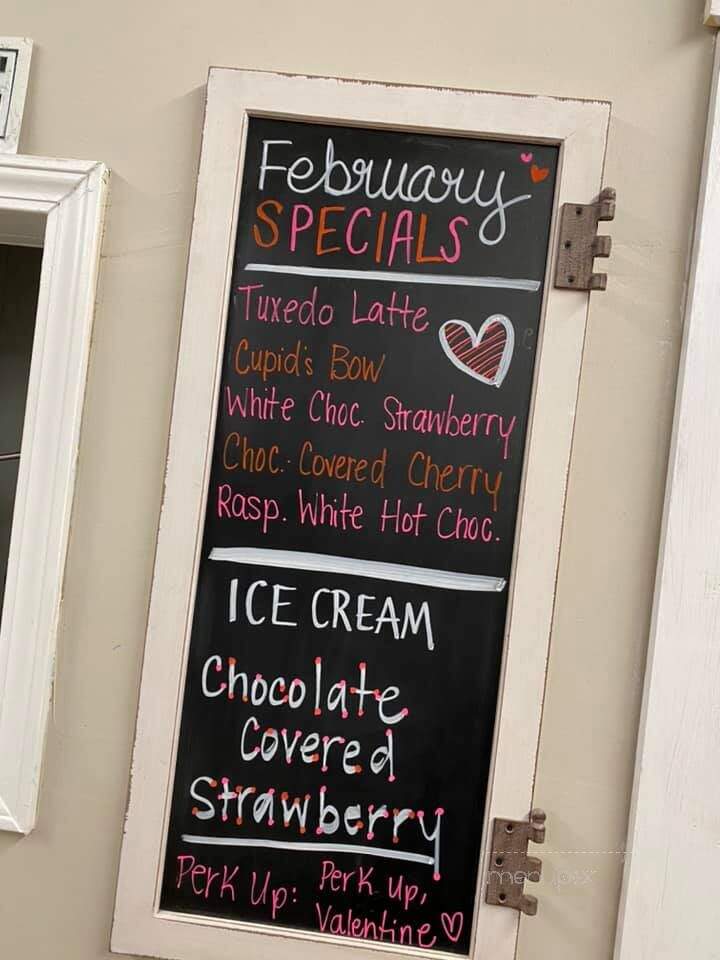 February
SPECIALS
Tuxedo Latte
Cupid's Bow
White Choc. Strawberry
Choc. Covered Cherry
Rasp. White Hot Choc.
ICE CREAM
Chocolate
Covered
Strawberry
Perk Up: Perk up,
Valentine
menupix